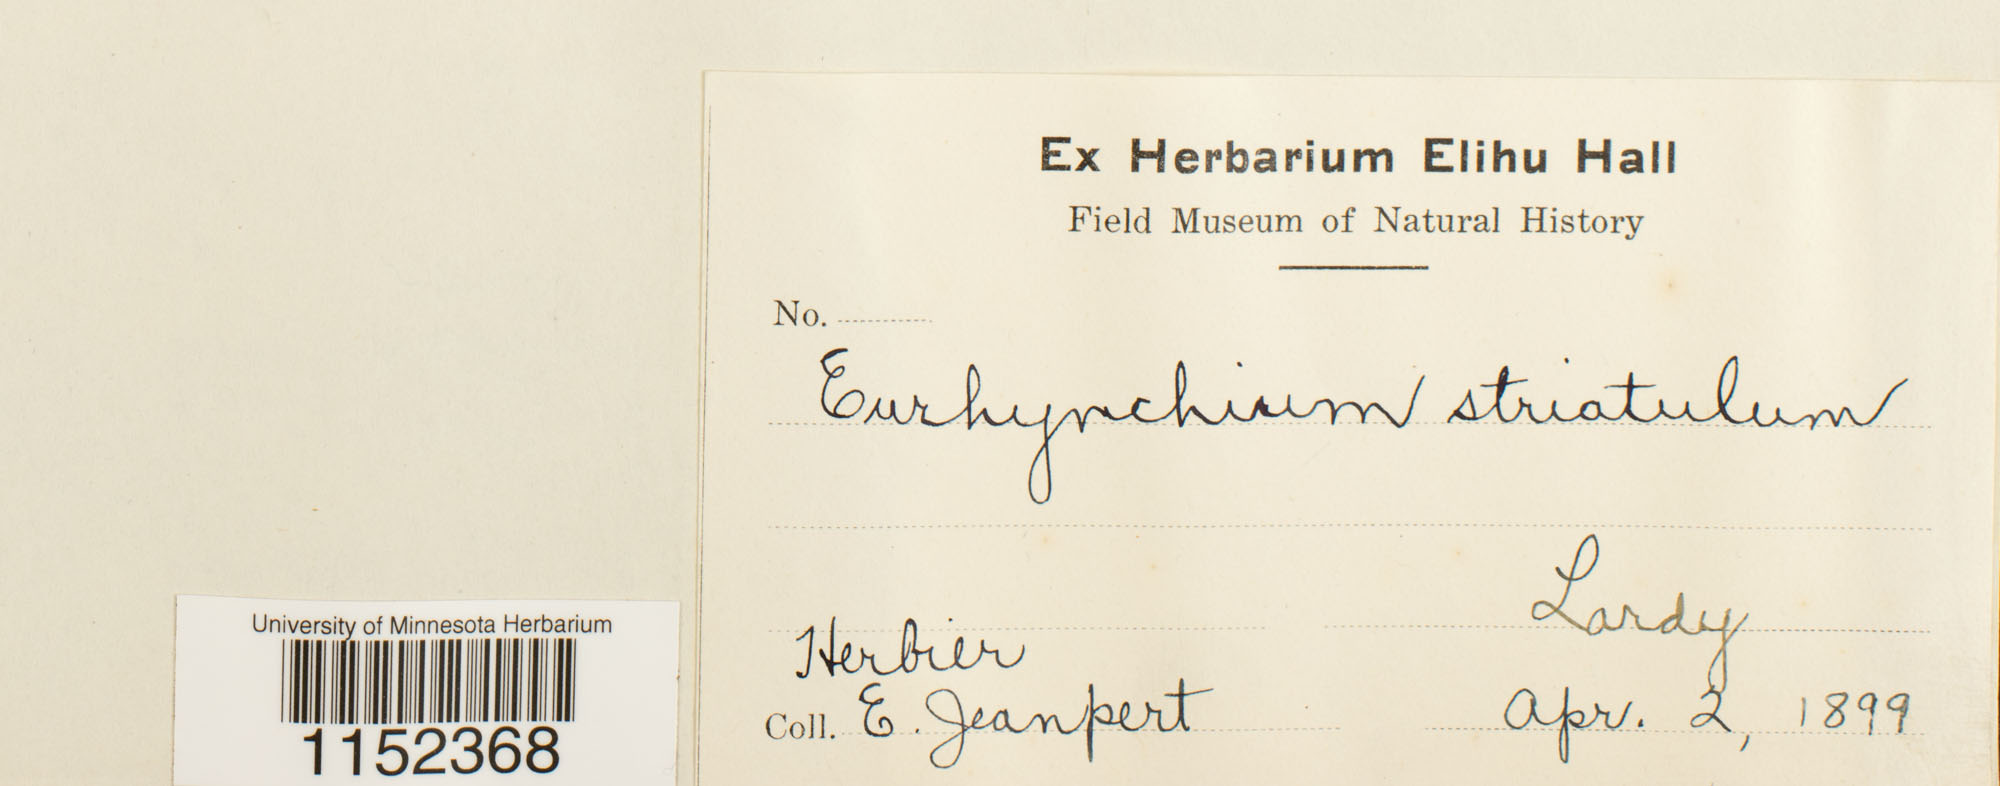 Ex Herbarium Elihu Hall
Field Museum of Natural History
No.
Eurhynchium striatulum
Lardy
Herbier
Coll. E. Jeanpert
Apr. 2, 1899
University of Minnesota Herbarium
1152368